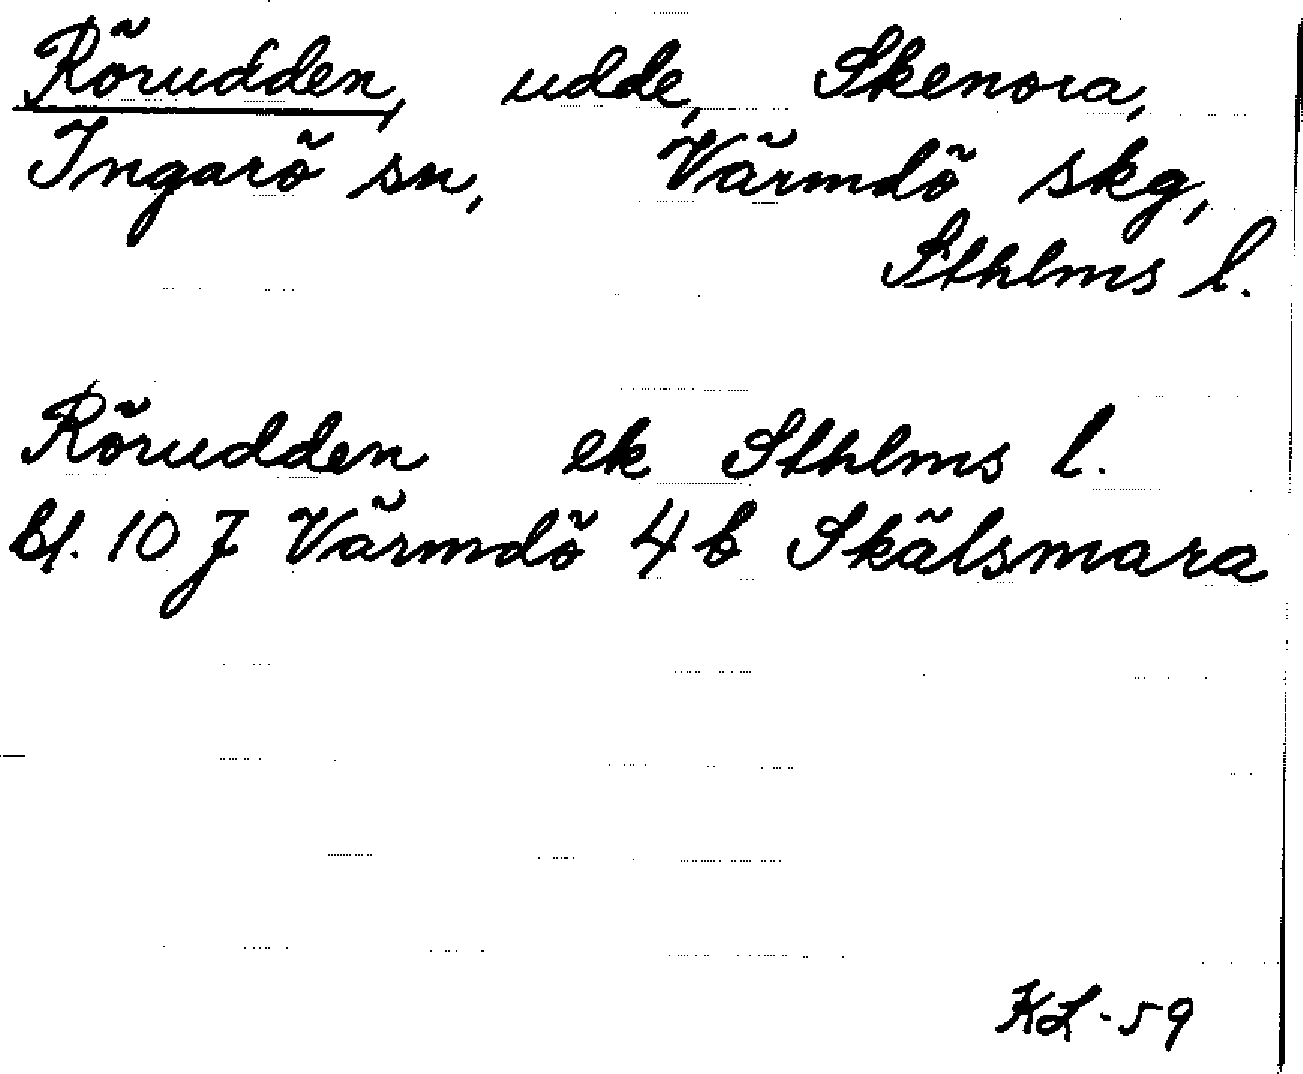 Rörudden, udde, Skenora,
Ingarö sn, Värmdö skg,
Sthlms l.
Rörudden ek Sthlms l.
Bl. 10 J Värmdö 4 b Skälsmara
KL-59